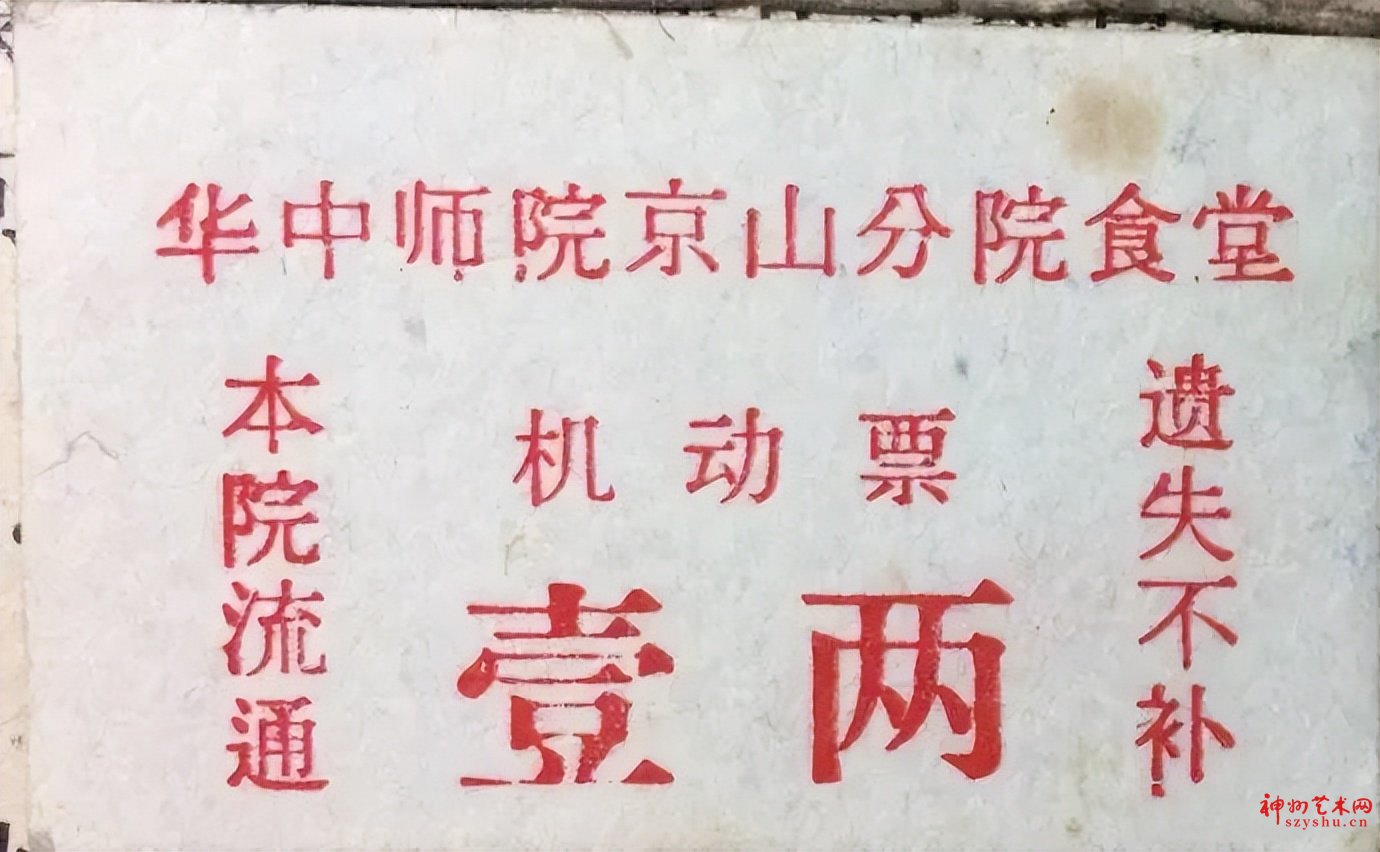 华中师院京山分院食堂
本院流通
机动票
壹两
遗失不补
神州艺术网
szyshu.cn